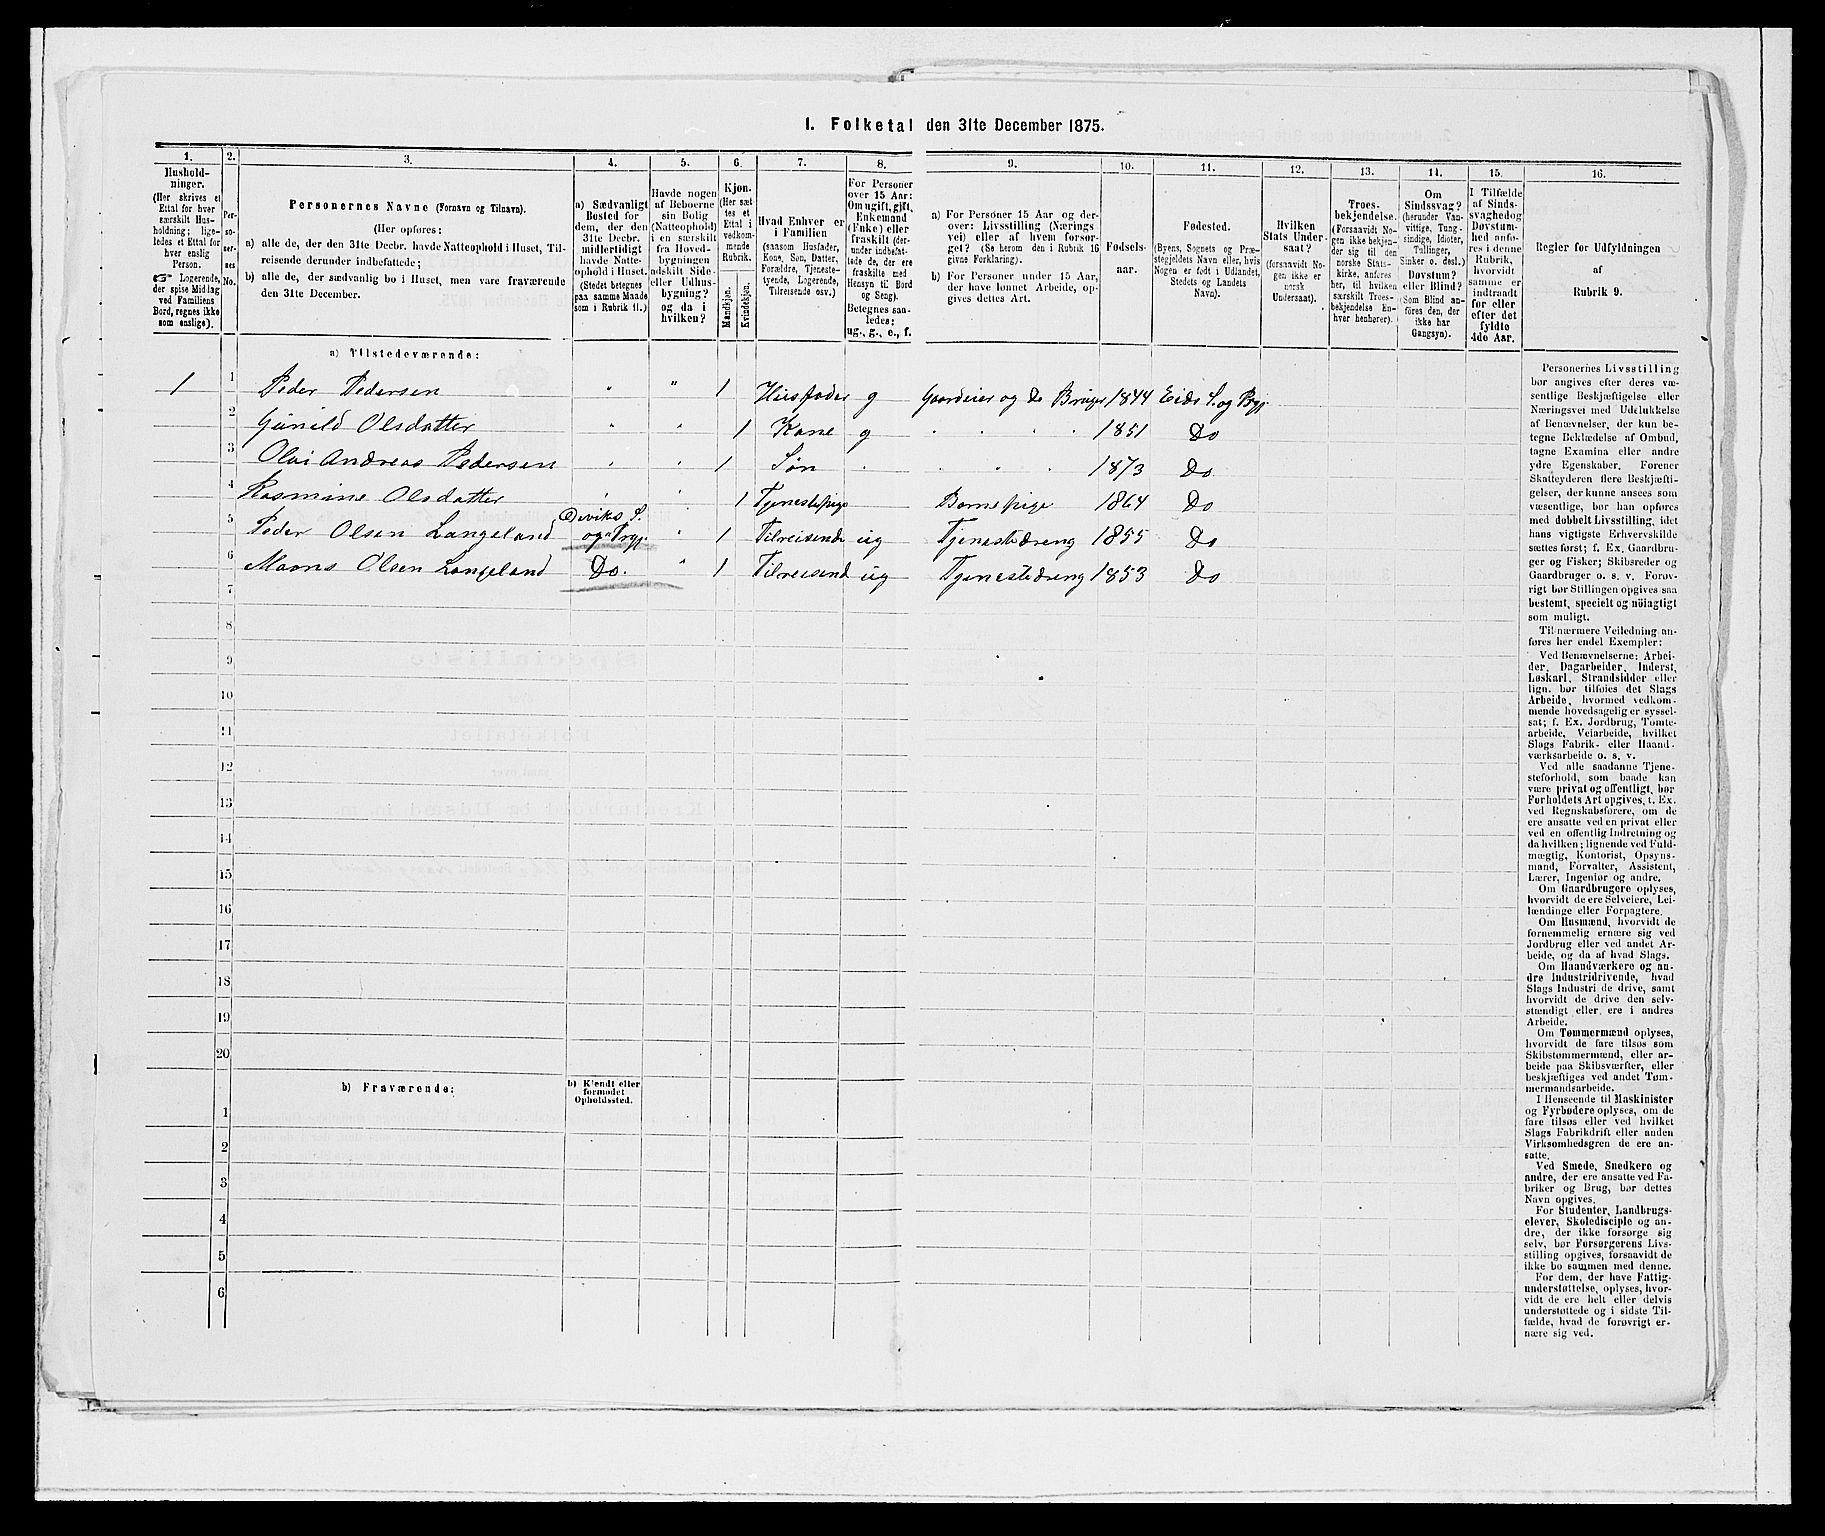 I. Folketal den 31te December 1875.
1. 2. 3. 4. 5. 6. 7. 8. 9. 10. 11. 12. 13. 14. 15. 16.
Hushold-
ninger.
(Her skrives et
Ettal for hver
særskilt Hus-
holdning; lige-
ledes et Ettal for
hver enslig
Person.
☞ Logerende,
der spise Middag
ved Familiens
Bord, regnes ikke
som enslige).
Per-
so-
ner-
nes
No.
Personernes Navne (Fornavn og Tilnavn).
(Her opføres:
a) alle de, der den 31te Decbr. havde Natteophold i Huset, Til-
reisende derunder indbefattede;
b) alle de, der sædvanlig bo i Huset, men vare fraværende
den 31te December.
a) Sædvanligt
Bosted for
dem, der den
31te Decbr.
midlertidigt
havde Natte-
ophold i Huset.
(Stedet betegnes
paa samme Maade
som i Rubrik 11.)
Havde nogen
af Beboerne
sin Bolig
(Natteophold)
i en særskilt
fra Hoved-
bygningen
adskilt Side-
eller Udhus-
bygning?
og da i
hvilken?
Kjøn.
(Her sæt-
tes et
Ettal i
vedkom-
mende
Rubrik.
Mandkjøn.
Kvindekjøn.
Hvad Enhver er
i Familien
(saasom Husfader,
Kone, Søn, Datter,
Forældre, Tjeneste-
tyende, Logerende,
Tilreisende osv.)
For Personer
over 15 Aar:
Om ugift, gift,
Enkemand
(Enke) eller
fraskilt (der-
under indbefat-
tede de, der ere
fraskilte med
Hensyn til Bord
og Seng).
Betegnes saa-
ledes:
ug., g., e., f.
a) For Personer 15 Aar og der-
over: Livsstilling (Nærings-
vei) eller af hvem forsør-
get? (Se herom den i Rubrik 16
givne Forklaring).
b) For Personer under 15 Aar,
der have lønnet Arbeide, op-
gives dettes Art.
Fødsels-
aar.
Fødested.
(Byens, Sognets og Præ-
stegjeldets Navn eller, hvis
Nogen er født i Udlandet,
Stedets og Landets
Navn).
Hvilken
Stats Under-
saat?
(forsaavidt No-
gen ikke er
norsk
Undersaat).
Troes-
bekjendelse.
(Forsaavidt No-
gen ikke bekjen-
der sig til den
norske Stats-
kirke, anføres
her, til hvilken
særskilt Troes-
bekjendelse En-
hver henhører).
Om
Sindssvag?
(herunder Van-
vittige, Tung-
sindige, Idioter,
Tullinger,
Sinker o. desl.)
Døvstum?
eller Blind?
(Som Blind an-
føres den, der
ikke har
Gangsyn).
I Tilfælde
af Sinds-
svaghed og
Døvstum-
hed anfø-
res i denne
Rubrik,
hvorvidt
samme er
indtraadt
før eller
efter det
fyldte
4de Aar.
Regler for Udfyldningen
af
Rubrik 9.
a) Tilstedeværende:
1 1 Peder Pedersen " " 1 Husfader g Gaardeier og do Bruger 1844 Eids S. og Prgj
2 Gunild Olsdatter " " 1 Kone g " 1851 Do
3 Olai Andreas Pedersen " " 1 Søn " 1873 Do
4 Rasmine Olsdatter " " 1 Tjenestepige Barnepige 1864 Do
5 Peder Olsen Langeland Deviks S. og Prgj. " 1 Tilreisende ug Tjenestedreng 1855 Do
6 Maons Olsen Langeland Do. " 1 Tilreisend ug Tjenestedreng 1853 Do
7
8
9
10
11
12
13
14
15
16
17
18
19
20
b) Fraværende:
b) Kjendt eller
formodet
Opholdssted.
1
2
3
4
5
6
Personernes Livsstilling
bør angives efter deres væ-
sentlige Beskjæftigelse eller
Næringsvei med Udelukkelse
af Benævnelser, der kun be-
tegne Beklædelse af Ombud,
tagne Examina eller andre
ydre Egenskaber. Forener
Skatteyderen flere Beskjæfti-
gelser, der kunne ansees som
væsentlige, bør han opføres
med dobbelt Livsstilling, idet
hans vigtigste Erhvervskilde
sættes først; f. Ex. Gaardbru-
ger og Fisker; Skibsreder og
Gaardbruger o. s. v. Forøv-
rigt bør Stillingen opgives saa
bestemt, specielt og nöiagtigt
som muligt.
Til nærmere Veiledning an-
føres her endel Exempler:
Ved Benævnelserne: Arbei-
der, Dagarbeider, Inderst,
Løskarl, Strandsidder eller
lign. bør tilføies det Slags
Arbeide, hvormed vedkom-
mende hovedsagelig er syssel-
sat; f. Ex. Jordbrug, Tomte-
arbeide, Veiarbeide, hvilket
Slags Fabrik- eller Haand-
værksarbeide o. s. v.
Ved alle saadanne Tjene-
steforhold, som baade kan
være privat og offentligt, bør
Forholdets Art opgives, t. Ex.
ved Regnskabsførere, om de
ere ansatte ved en privat eller
ved en offentlig Indretning og
da hvilken; lignende ved Fuld-
mægtig, Kontorist, Opsyns-
mand, Forvalter, Assistent,
Lærer, Ingeniør og andre.
Om Gaardbrugere oplyses,
hvorvidt de ere Selveiere, Lei-
lændinge eller Forpagtere.
Om Husmænd, hvorvidt de
fornemmelig ernære sig ved
Jordbrug eller ved andet Ar-
beide, og da af hvad Slags.
Om Haandværkere og an-
dre Industridrivende, hvad
Slags Industri de drive, samt
hvorvidt de drive den selv-
stændigt eller ere i andres
Arbeide.
Om Tømmermænd oplyses,
hvorvidt de fare tilsøs som
Skibstømmermænd, eller ar-
beide paa Skibsværfter, eller
beskjæftiges ved andet Tøm-
mermandsarbeide.
I Henseende til Maskinister
og Fyrbødere oplyses, om de
fare tilsøs eller ved hvilket
Slags Fabrikdrift eller anden
Virksomhedsgren de ere an-
satte.
Ved Smede, Snedkere og
andre, der ere ansatte ved Fa-
briker og Brug, bør dettes
Navn opgives.
For Studenter, Landbrugs-
elever, Skoledisciple og an-
dre, der ikke forsørge sig
selv, bør Forsørgerens Livs-
stilling opgives, forsaavidt de
ikke bo sammen med denne.
For dem, der have Fattig-
understøttelse, oplyses, hvor-
vidt de ere helt eller delvis
understøttede og i sidste Til-
fælde, hvad de forøvrigt er-
nære sig ved.